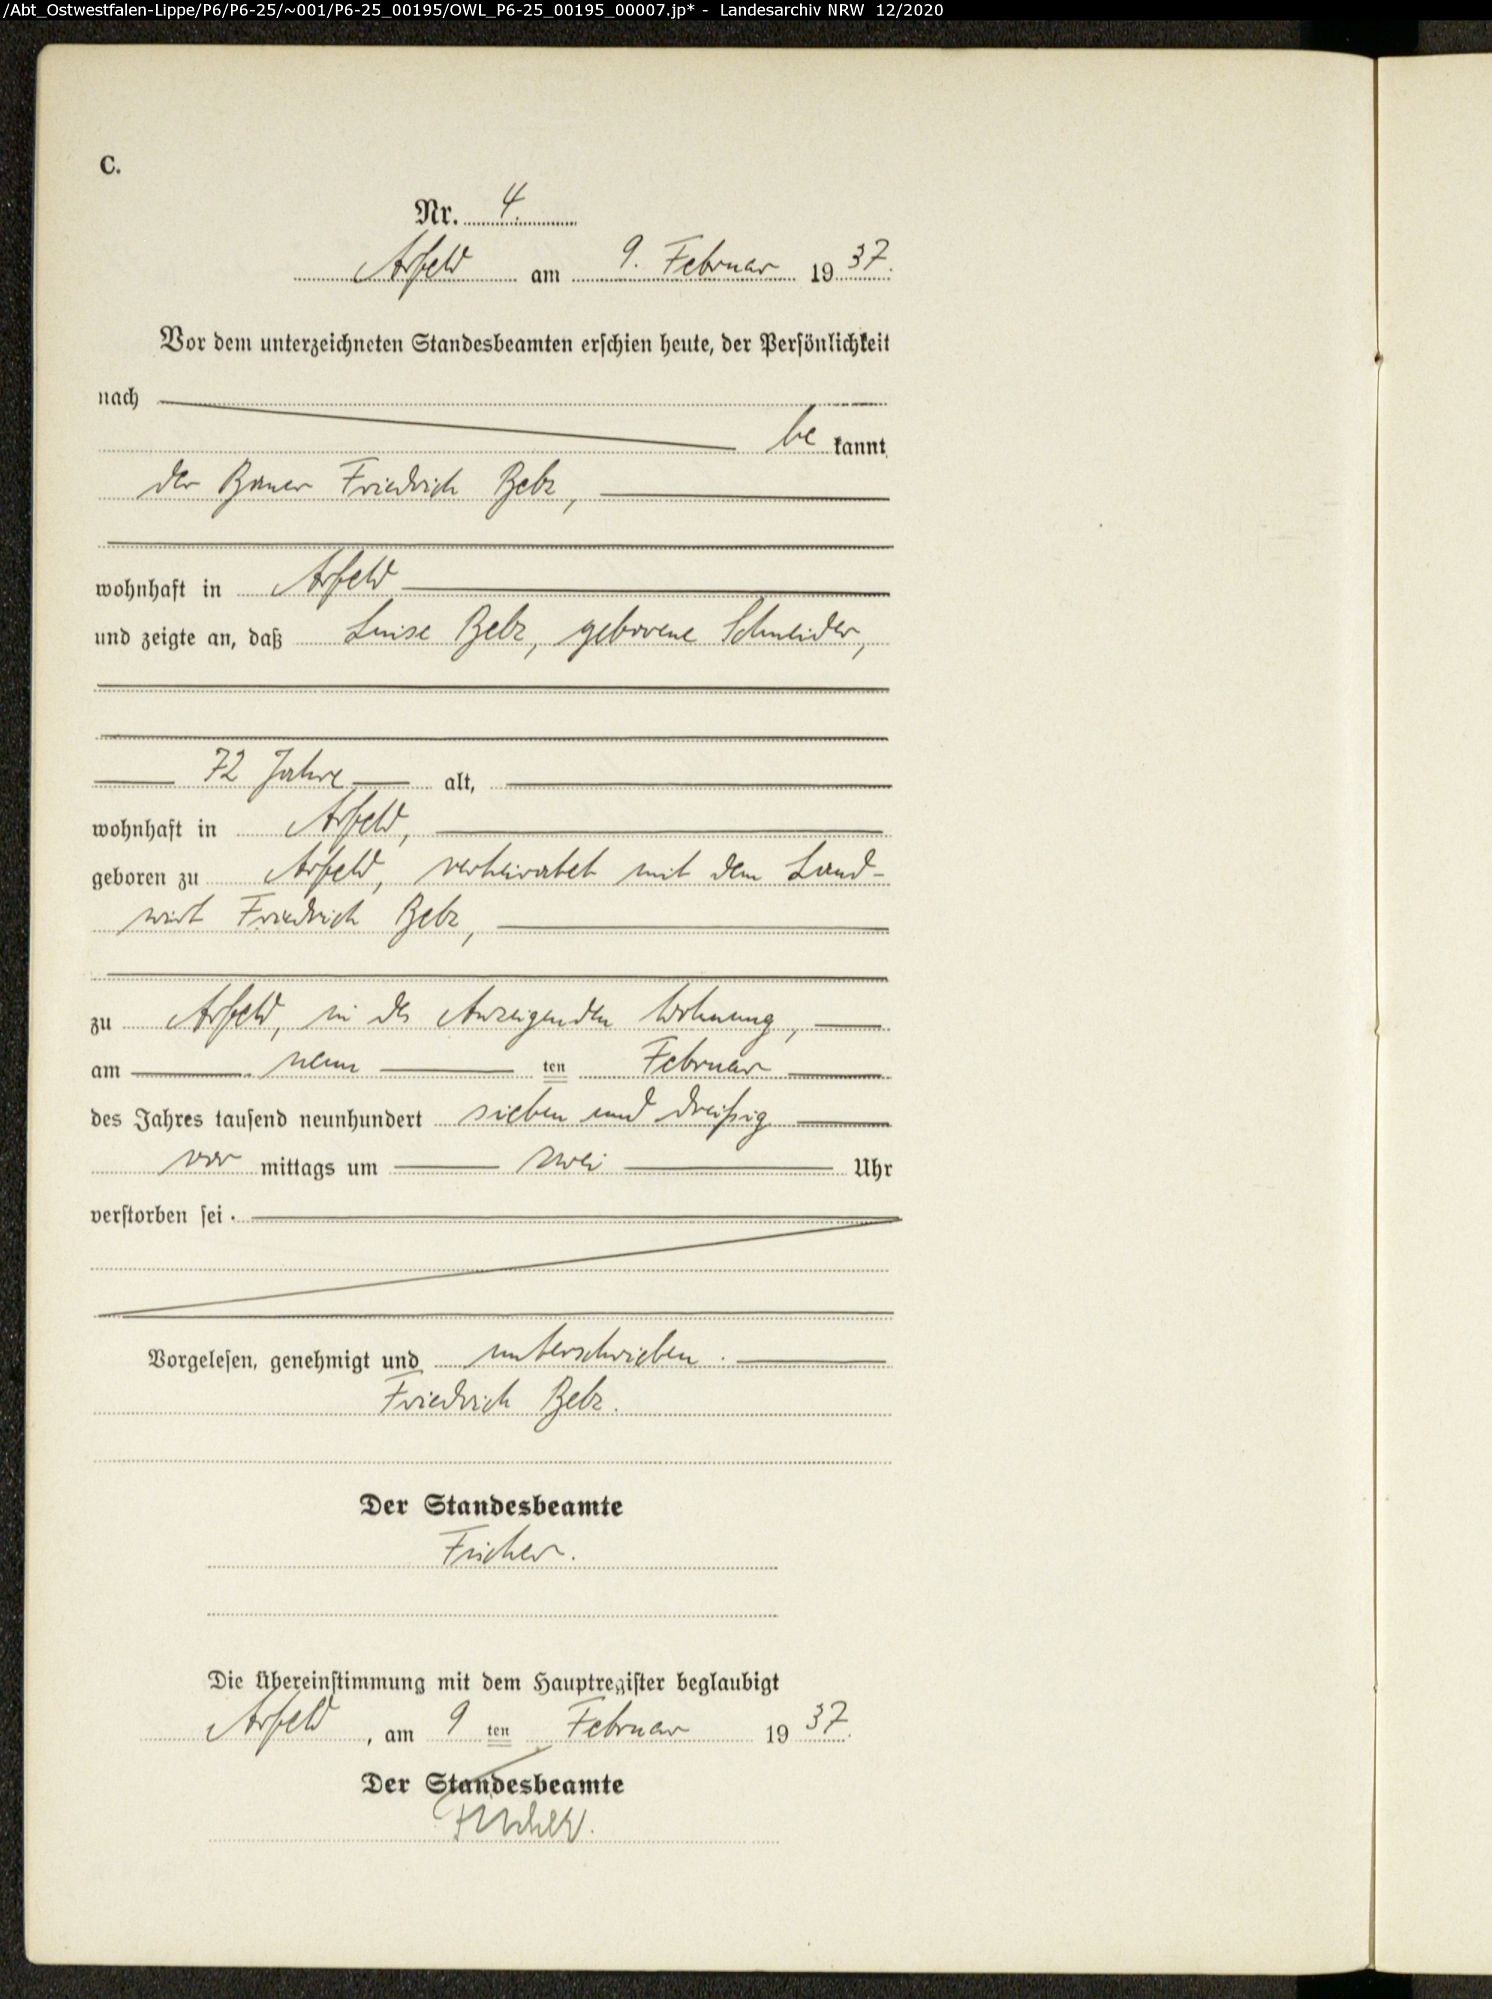 /Abt_Ostwestfalen-Lippe/P6/P6-25/~001/P6-25_00195/OWL_P6-25_00195_00007.jp* - Landesarchiv NRW 12/2020
C.
Nr. 4.
Arfeld am 9. Februar 1937.
Vor dem unterzeichneten Standesbeamten erschien heute, der Persönlichkeit
nach
be kannt
der Bauer Friedrich Belz,
wohnhaft in Arfeld
und zeigte an, daß Luise Belz, geborene Schneider,
72 Jahre alt,
wohnhaft in Arfeld,
geboren zu Arfeld, verheiratet mit dem Land-
wirt Friedrich Belz,
zu Arfeld, in des Anzeigenden Wohnung,
am neun ten Februar
des Jahres tausend neunhundert sieben und dreißig
vor mittags um zwei Uhr
verstorben sei.
Vorgelesen, genehmigt und unterschrieben.
Friedrich Belz.
Der Standesbeamte
Fischer.
Die Übereinstimmung mit dem Hauptregister beglaubigt
Arfeld, am 9 ten Februar 1937.
Der Standesbeamte
Fischer.